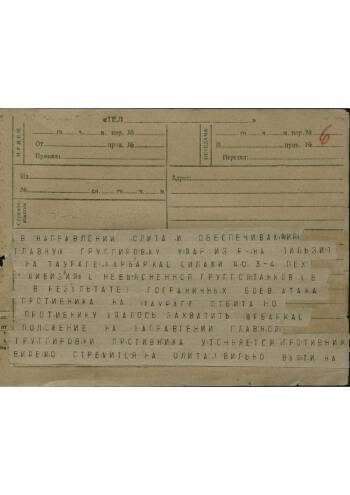 ТЕЛ
ПРИЕМ
ч. м. пер. №
От пров. №
Принял:
ПЕРЕДАЧА
ч. м. пер. №
В пров. №
Передал:
6
Из
№
Адрес:
В НАПРАВЛЕНИИ ОЛИТА И ОБЕСПЕЧИВАЮЩИЙ
ГЛАВНУЮ ГРУППИРОВКУ УДАР ИЗ Р-НА ТИЛЬЗИТ
НА ТАУРАГЕ СИЛАМИ ДО 3-4 ПЕХ
ДИВИЗИЙ С НЕВЫЯСНЕННОЙ ГРУППОЙ ТАНКОВ
В РЕЗУЛЬТАТЕ ПОГРАНИЧНЫХ БОЕВ АТАКА
ПРОТИВНИКА НА ТАУРАГЕ ОТБИТА НО
ПРОТИВНИКУ УДАЛОСЬ ЗАХВАТИТЬ ЮРБАРКАС
ПОЛОЖЕНИЕ НА НАПРАВЛЕНИИ ГЛАВНОЙ
ГРУППИРОВКИ ПРОТИВНИКА УТОЧНЯЕТСЯ ПРОТИВНИК
ВИДИМО СТРЕМИТСЯ НА ОЛИТА ВИЛЬНО ВЫЙТИ НА